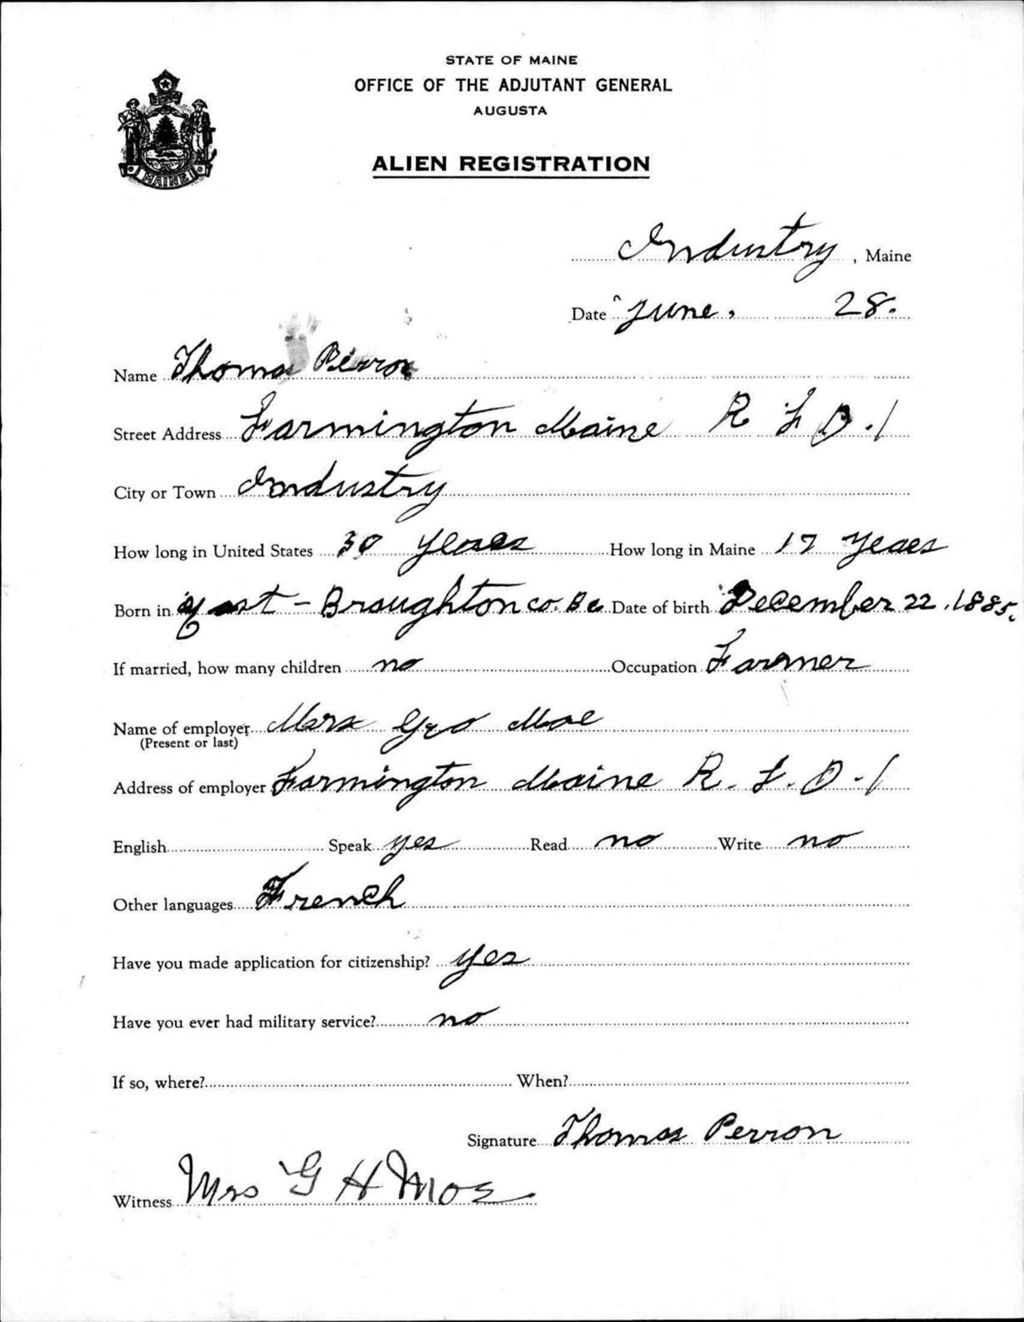 STATE OF MAINE
OFFICE OF THE ADJUTANT GENERAL
AUGUSTA
MAINE
ALIEN REGISTRATION
Industry, Maine
Date June, 28.
Name Thomas Perron
Street Address Farmington Maine R F D. 1
City or Town Industry
How long in United States 30 years How long in Maine 17 years
Born in East - Broughton co. Be Date of birth December 22, 1885.
If married, how many children no Occupation Farmer
Name of employer Mrs Geo Moe
(Present or last)
Address of employer Farmington Maine R. F. D - 1
English Speak yes Read no Write no
Other languages French
Have you made application for citizenship? yes
Have you ever had military service? no
If so, where? When?
Signature Thomas Perron
Witness Mrs G H Moe